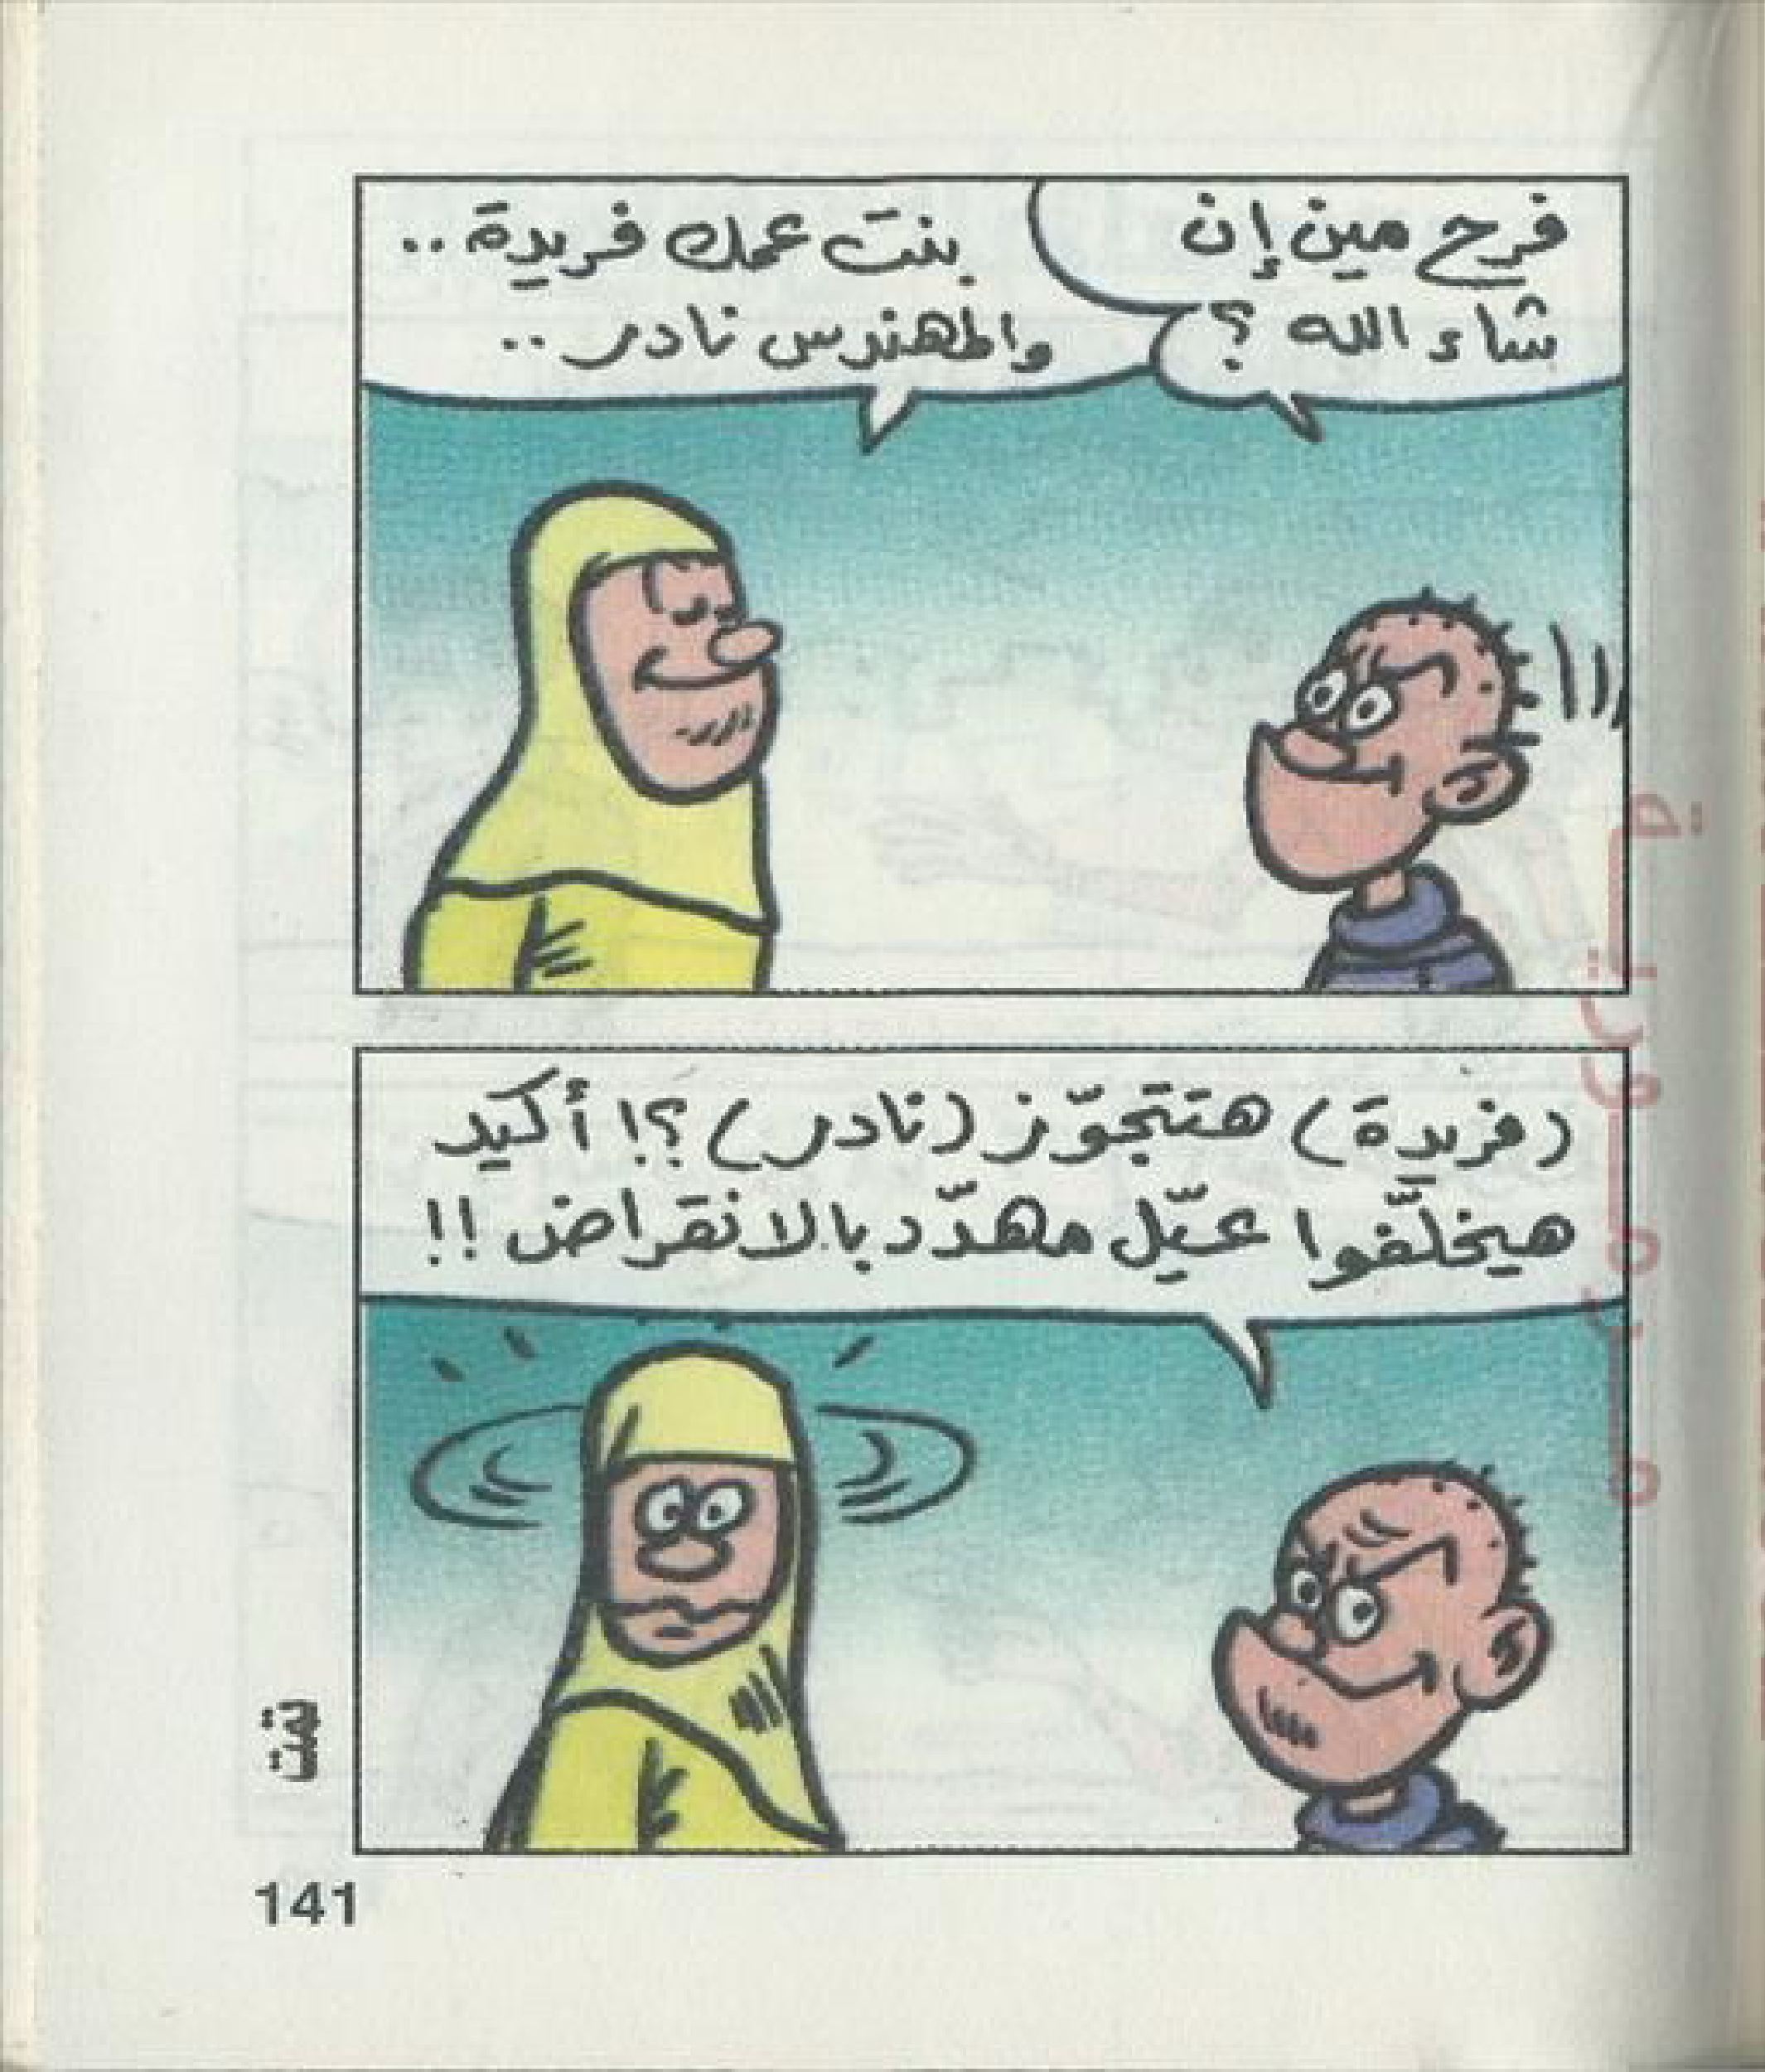 فرح مين إن
شاء الله ؟
بنت عمك فريدة ..
والمهندس نادر ..
(فريدة) هتتجوّز (نادر) ؟! أكيد
هيخلّفوا عيّل مهدّد بالانقراض !!
تمت
141